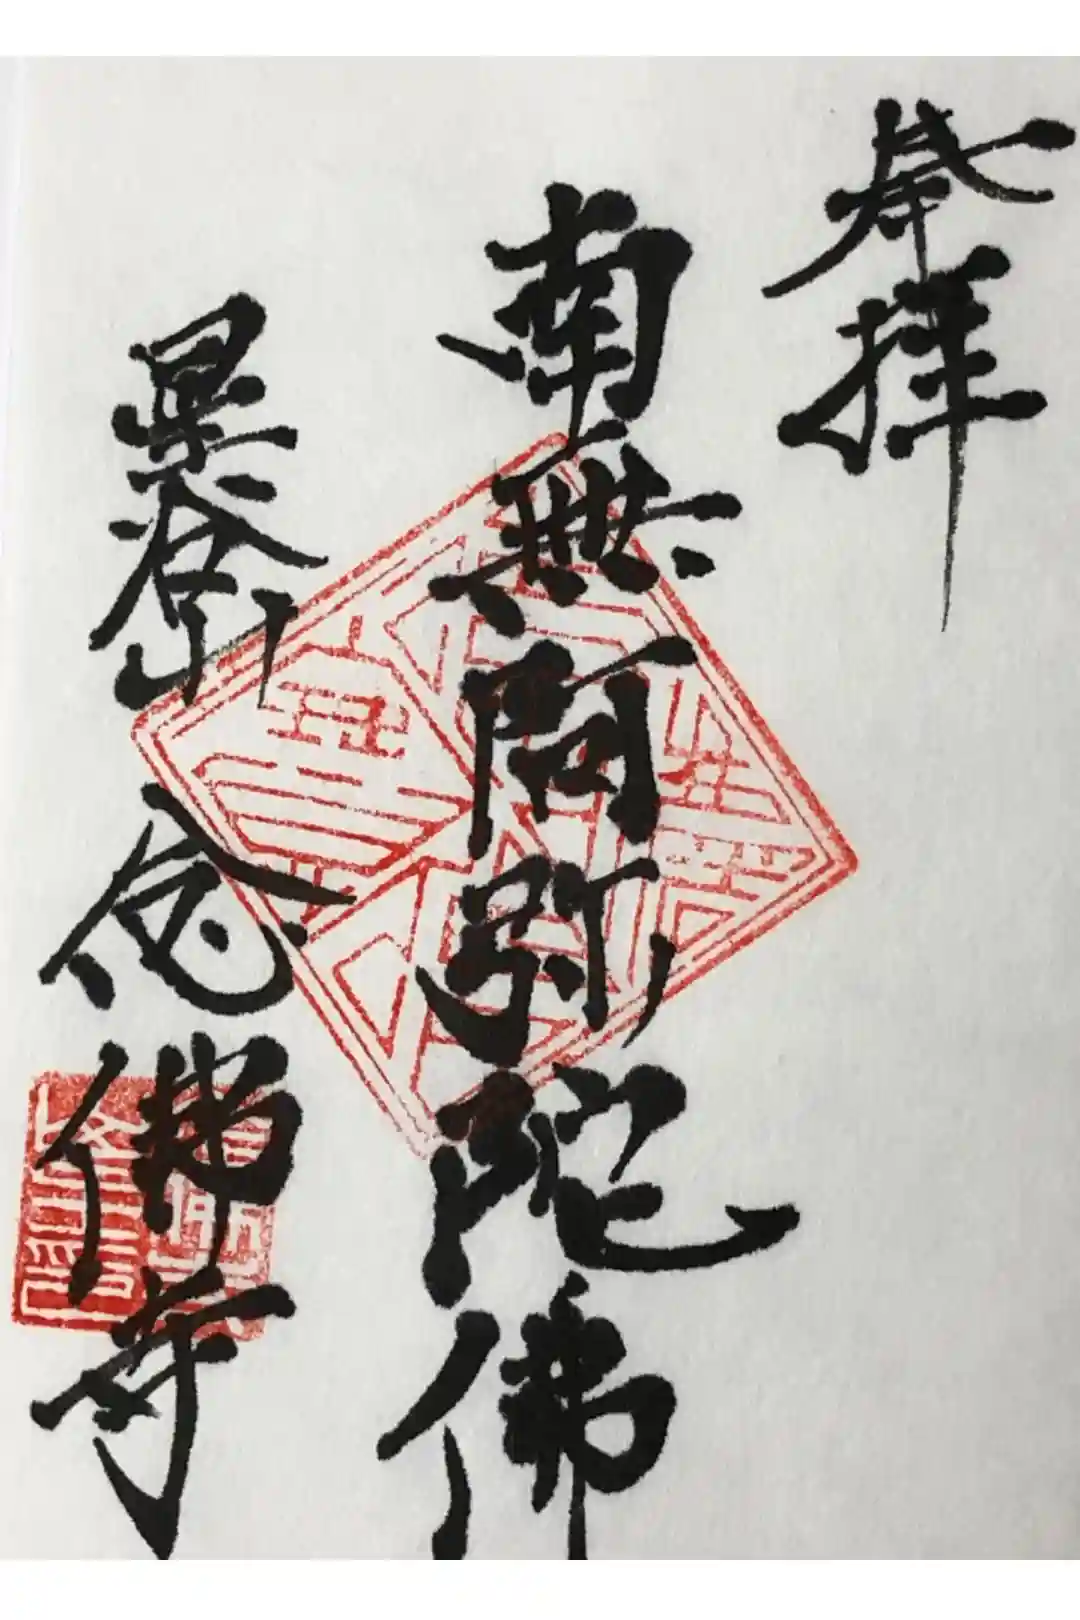 奉拝
南無阿弥陀佛
黒谷山 念佛寺